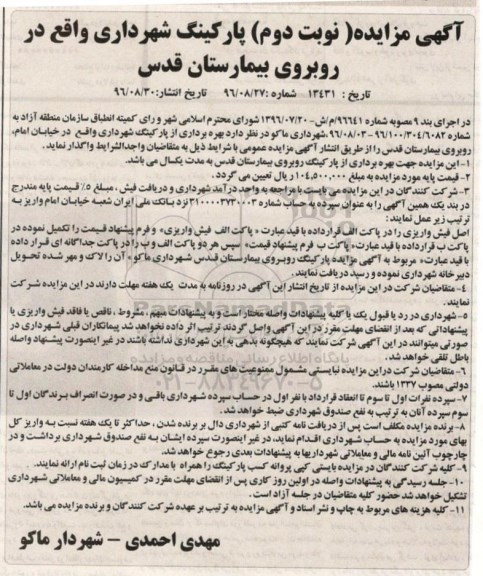 آگهی مزایده( نوبت دوم) پارکینگ شهرداری واقع در
روبروی بیمارستان قدس
تاریخ : ۱۳۴۳۱ شماره :۹۶/۰۸/۲۷ تاریخ انتشار:۹۶/۰۸/۳۰
در اجرای بند ۹ مصوبه شماره ۹۶۶۴۱/م/ش-۱۳۹۶/۰۷/۲۰ شورای محترم اسلامی شهر و رای کمیته انطباق سازمان منطقه آزاد به
شماره ۹۶/۱۰۰/۳۰۴/۶۰۸۲-۹۶/۰۸/۰۳ شهرداری ماکو در نظر دارد بهره برداری از پارکینگ شهرداری واقع در خیابان امام،
روبروی بیمارستان قدس را از طریق انتشار آگهی مزایده عمومی با شرایط ذیل به متقاضیان واجدالشرایط واگذار نماید.
۱-این مزایده جهت بهره برداری از پارکینگ روبروی بیمارستان قدس به مدت یکسال می باشد.
۲- قیمت پایه مورد مزایده به مبلغ ۱۰۴,۵۰۰,۰۰۰ ریال تعیین می گردد.
۳- شرکت کنندگان در این مزایده می بایست با مراجعه به واحد درآمد شهرداری و دریافت فیش ، مبلغ ۵٪ قیمت پایه مندرج
در بند یک همین آگهی را به عنوان سپرده به حساب شماره ۳۱۰۰۰۰۳۷۳۰۰۰۳ نزد بانک ملی ایران شعبه خیابان امام واریز به
ترتیب زیر عمل نمایند:
اصل فیش واریزی را در پاکت الف قرارداده با قید عبارت « پاکت الف فیش واریزی» و فرم پیشنهاد قیمت را تکمیل نموده در
پاکت ب قرارداده با قید عبارت« پاکت ب فرم پیشنهاد قیمت» سپس هر دو پاکت الف و ب را در پاکت جداگانه ای قرار داده
با قید عبارت« مربوط به آگهی مزایده پارکینگ روبروی بیمارستان قدس شهرداری ماکو» آن را لاک و مهر شده تحویل
دبیرخانه شهرداری نموده و رسید دریافت نمایند.
۴- متقاضیان شرکت در این مزایده از تاریخ انتشار این آگهی در روزنامه به مدت یک هفته مهلت دارند در این مزایده شرکت
نمایند.
۵-شهرداری در رد یا قبول یک یا کلیه پیشنهادات واصله مختار است و به پیشنهادات مبهم، مشروط ، ناقص یا فاقد فیش واریزی یا
پیشنهاداتی که بعد از انقضای مهلت مقرر در این آگهی واصل گردند ترتیب اثر داده نخواهد شد پیمانکاران قبلی شهرداری در
صورتی میتوانند در این آگهی شرکت نمایند که هیچگونه بدهی به این شهرداری نداشته باشند در غیر اینصورت پیشنهاد واصله
باطل تلقی خواهد شد.
۶- متقاضیان شرکت دراین مزایده نبایستی مشمول ممنوعیت های مقرر در قانون منع مداخله کارمندان دولت در معاملاتی
دولتی مصوب ۱۳۳۷ باشند.
۷- سپرده نفرات اول تا سوم تا انعقاد قرارداد با نفر اول در حساب سپرده شهرداری باقی و در صورت انصراف برندگان اول تا
سوم سپرده آنان به ترتیب به نفع صندوق شهرداری ضبط خواهد شد.
۸- برنده مزایده مکلف است پس از دریافت نامه کتبی از شهرداری دال بر برنده شدن ، حداکثر تا یک هفته نسبت به واریز کل
بهای مورد مزایده به حساب شهرداری اقدام نماید، در غیر اینصورت سپرده ایشان به نفع صندوق شهرداری برداشت و در
چارچوب آئین نامه مالی و معاملاتی شهرداریها به پیشنهادات بعدی رجوع خواهد شد.
۹- کلیه شرکت کنندگان در مزایده بایستی کپی پروانه کسب پارکینگ را همراه با مدارک در زمان ثبت نام ارائه نمایند.
۱۰- جلسه رسیدگی به پیشنهادات واصله در اولین روز کاری پس از انقضای مهلت مقرر در کمیسیون مالی و معاملاتی شهرداری
تشکیل خواهد شد حضور کلیه متقاضیان در جلسه آزاد است .
۱۱- کلیه هزینه های مربوط به چاپ و نشر اسناد و آگهی مزایده به ترتیب بر عهده شرکت کنندگان و برنده مزایده می باشد.
مهدی احمدی – شهردار ماکو
پایگاه اطلاع رسانی مناقصه و مزایده
۰۲۱-۸۸۳۴۹۶۷۰-۵